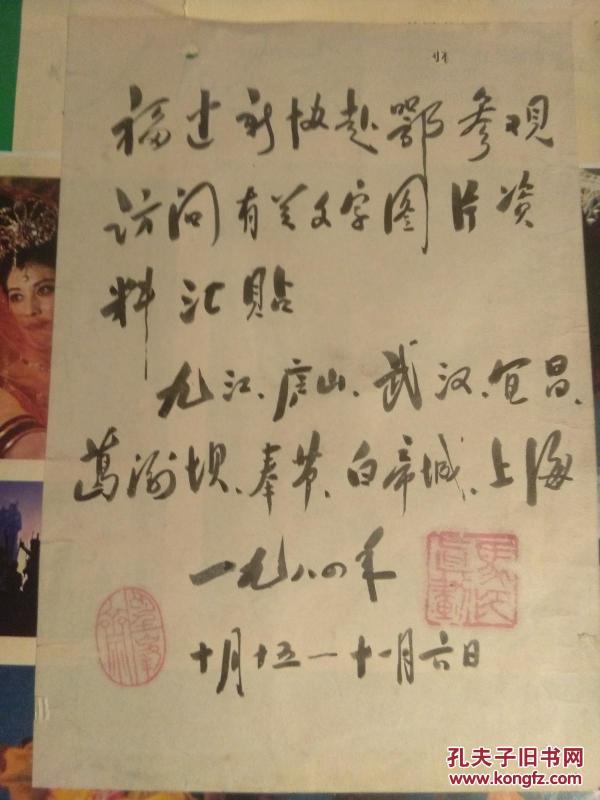 福建新协赴鄂参观
访问有关文字图片资
料汇贴
九江、庐山、武汉、宜昌、
葛洲坝、奉节、白帝城、上海
一九八四年
十月十五—十一月六日
孔夫子旧书网
www.kongfz.com